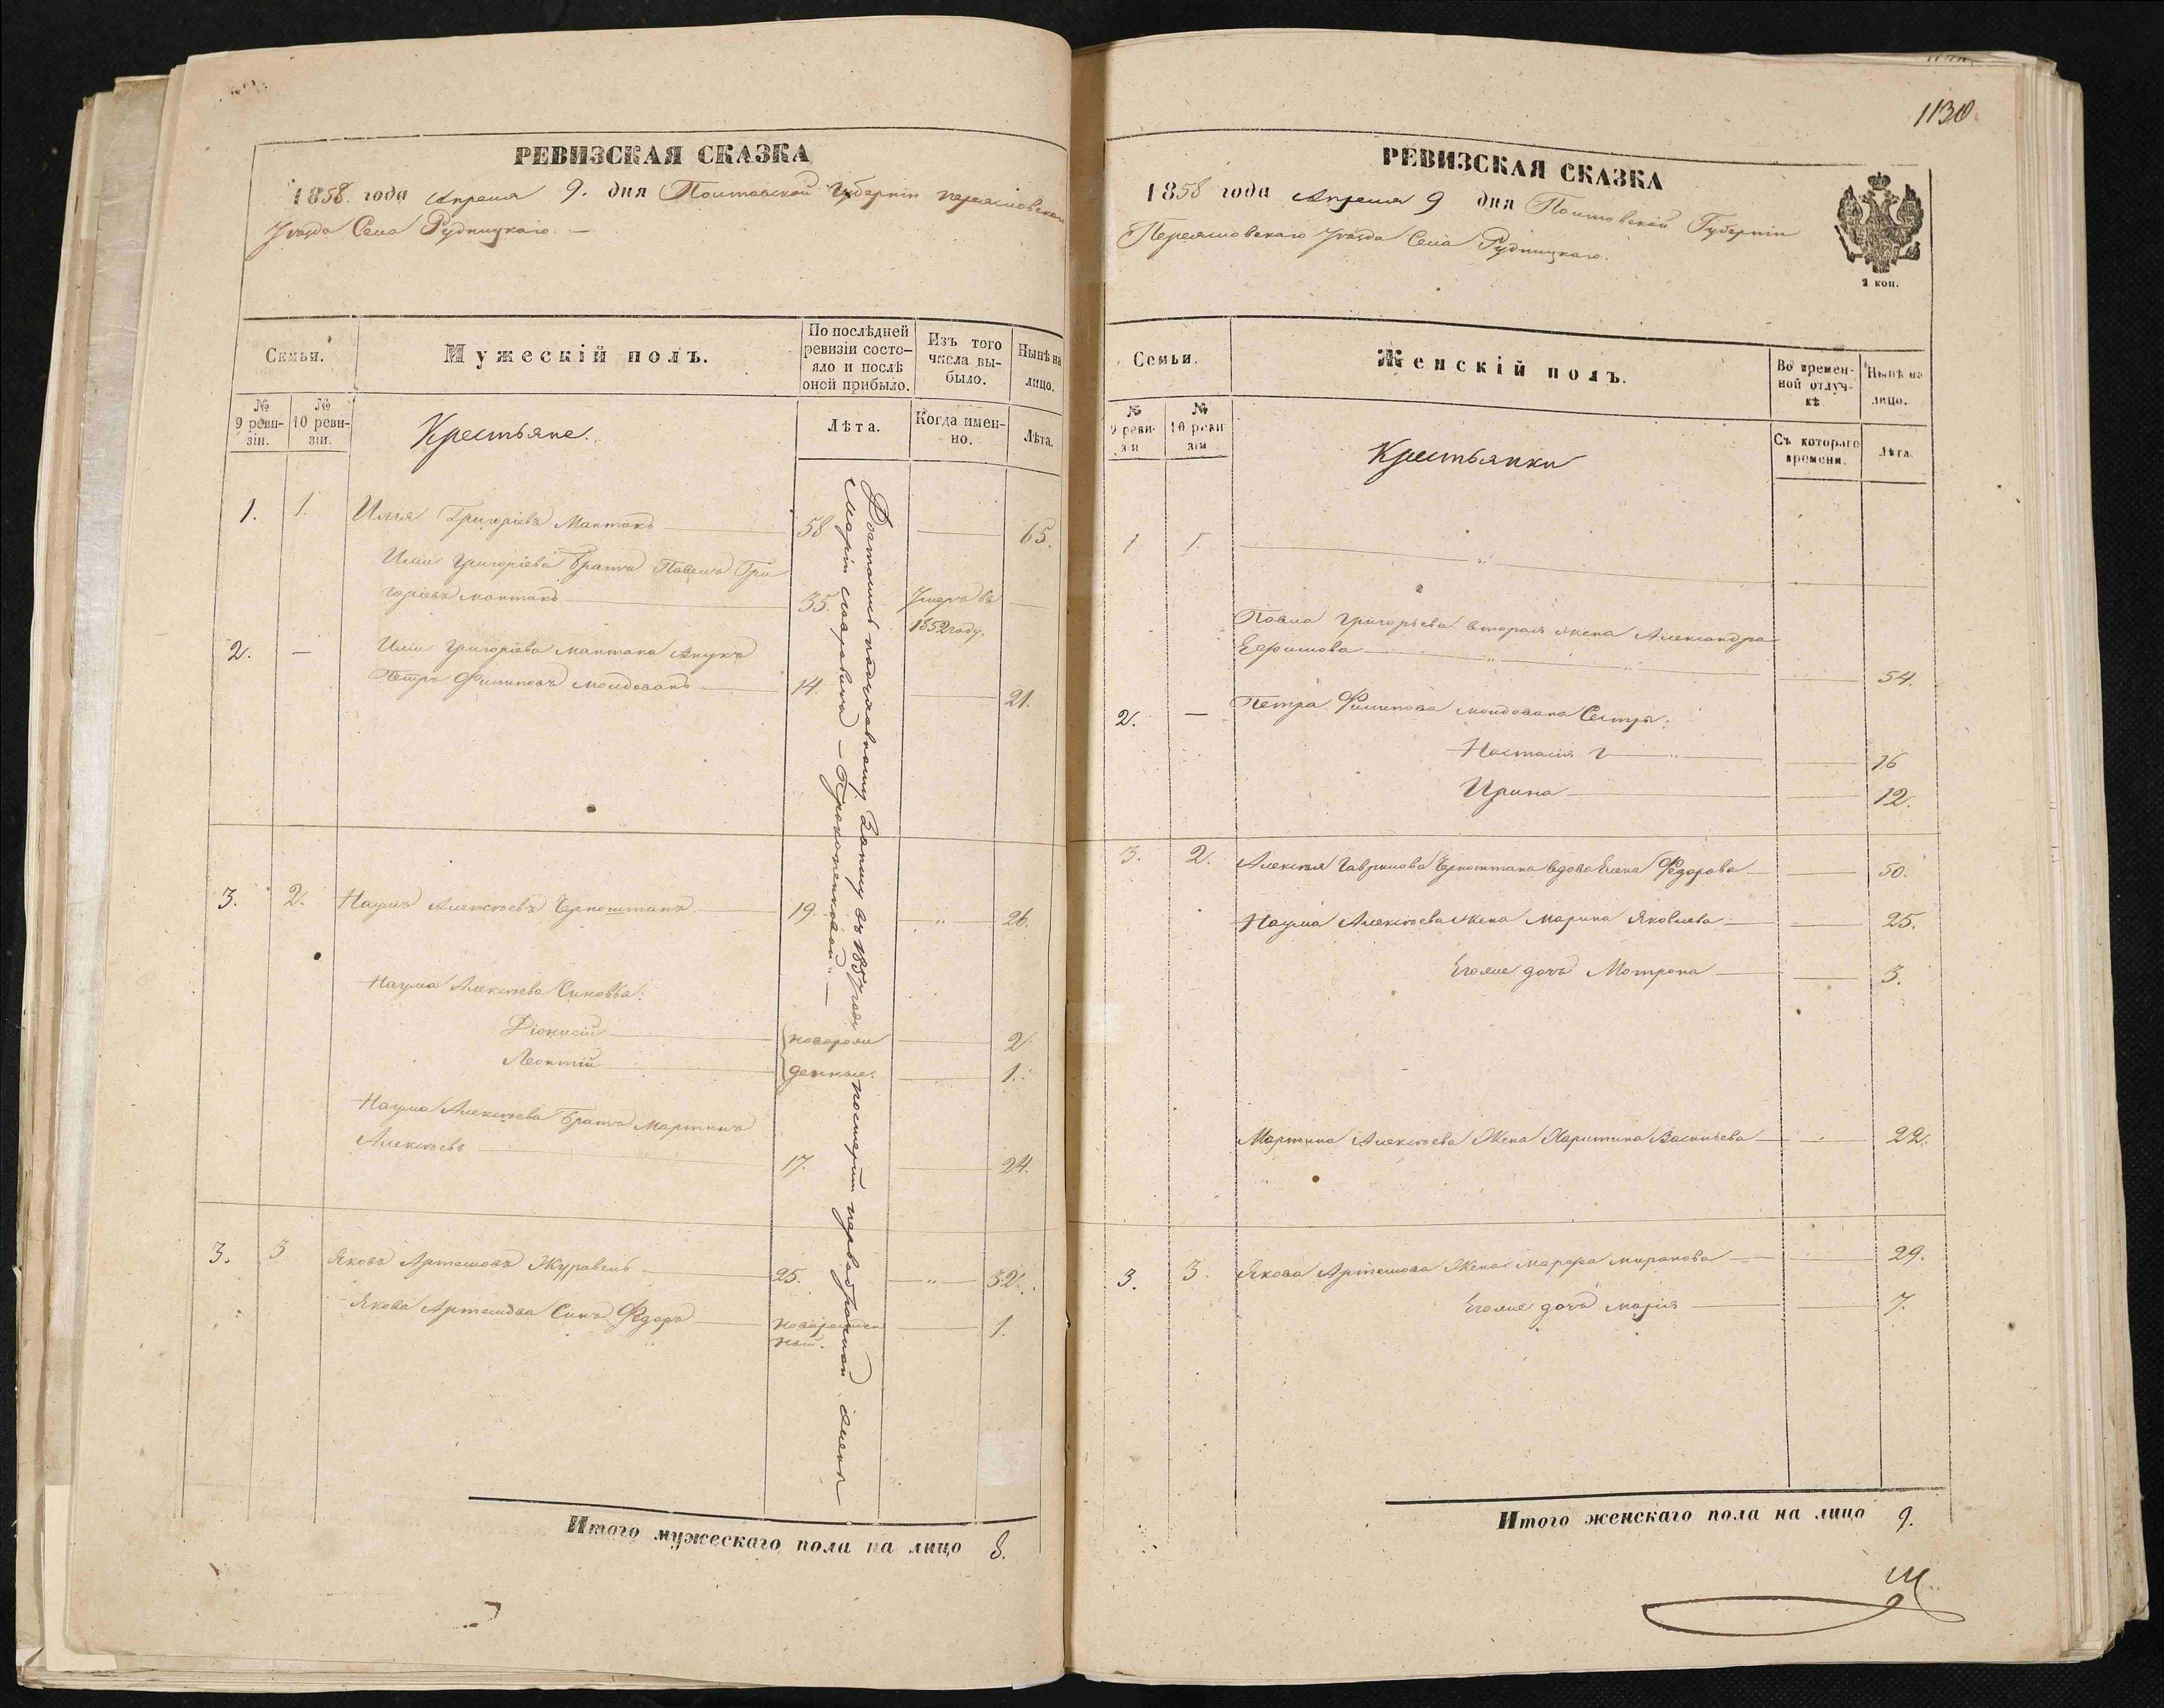 РЕВИЗСКАЯ СКАЗКА
1858 года Апреля 9. дня Полтавской Губерніи Переяславскаго
Уѣзда Села Рудницкаго. —
Семьи.
Мужескій полъ.
По послѣдней ревизіи состояло и послѣ оной прибыло.
Изъ того числа выбыло.
Нынѣ на лицо.
№ 9 ревизіи.
№ 10 ревизіи.
Крестьяне.
Лѣта.
Когда именно.
Лѣта.
1. 1. Илья Григоріевъ Мантакъ — 58 — 65.
Ильи Григоріева Братъ Павелъ Гри
горіевъ Мантакъ — 35. Умеръ въ —
1852 году.
2. — Ильи Григоріева Мантака Внукъ
Петръ Филиповъ Молдованъ — 14. — 21.
3. 2. Наумъ Алексѣевъ — 19. — „ — 26.
Наума Алексѣева Сыновья:
Діонисій — новорож — 2
Леонтій — денные. — 1.
Наума Алексѣева Братъ Мартинъ
Алексѣевъ — 17. — 24.
3. 3 Яковъ Артемовъ Журавель — 25. — „ — 32.
Якова Артемова Сынъ Федоръ — новорожден — 1.
ный.
Достались въ 1857 году по смерти
Маріи
Итого мужескаго пола на лицо 8.
1130
РЕВИЗСКАЯ СКАЗКА
1858 года Апреля 9 дня Полтовской Губерніи
Переяславскаго Уѣзда Села Рудницкаго.
2 коп.
Семьи.
Женскій полъ.
Во временной отлучкѣ
Нынѣ на лицо.
№ 9 ревизіи
№ 10 ревизіи
Крестьянки
Съ котораго времени.
Лѣта.
1 1. — „ —
Павла Григорьева вторая жена Александра
Ефимова — „ — „ — 54.
2. — Петра Филипова Молдована Сестры:
Настасія — 16
Ирина — 12.
3. 2. Алексѣя Гаврилова вдова Елена Федорова — 50.
Наума Алексѣева жена Марина Яковлева — 25.
Его же дочь Мотрона — 3.
Мартина Алексѣева Жена Харитина Васильева — 22.
3. 3. Якова Артемова Жена Марфа Миранова — 29.
Его же дочь Марія — 7.
Итого женскаго пола на лицо 9.